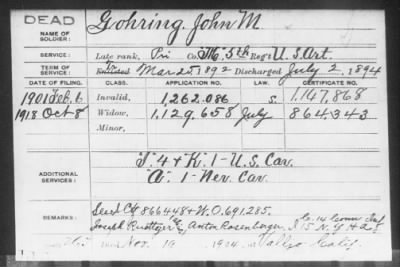 DEAD
Gohring, John M
NAME OF SOLDIER:
SERVICE: Late rank, Pri Co. M. 5th Reg't U.S. Art.
TERM OF SERVICE: Enlisted Mar 25, 1892 Discharged July 2, 1894
DATE OF FILING. CLASS. APPLICATION NO. CERTIFICATE NO.
1901 Feb. 6 Invalid, 1,262,086 1,147,868
1918 Oct 8 Widow, 1,129,658 864343
Minor,
ADDITIONAL SERVICES:
I. 4 + K. 1 - U.S. Cav.
"A" 1 - Nev. Cav.
REMARKS:
C 866448 + W.O. 691,285.
Joseph Anton Rosenberger, I 15 N.Y. H.A.
Nov. 19 Vallejo Calif.